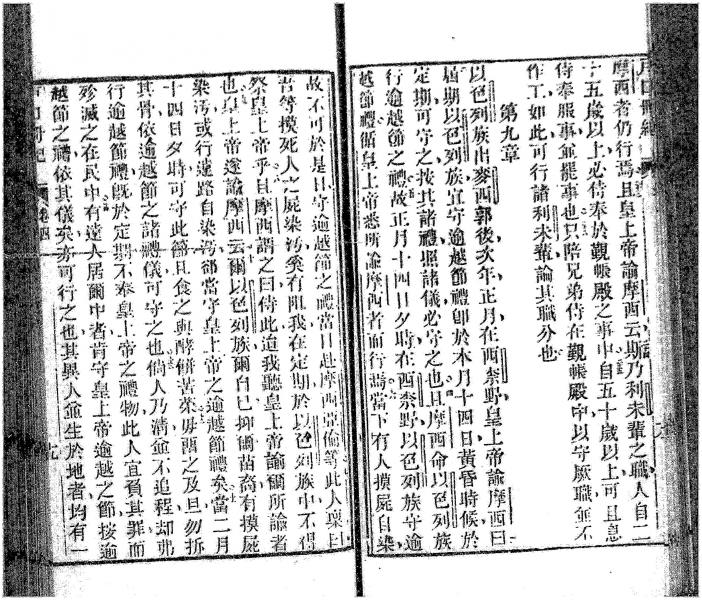 摩西者仍行焉且皇上帝諭摩西云斯乃利未輩之職人自二
十五歲以上必侍奉於覲帳殿之事中自五十歲以上可且息
侍奉服事並罷事也只陪兄弟侍在覲帳殿中以守厥職並不
作工如此可行諸利未輩論其職分也
第九章
以色列族出麥西郭後次年正月在西奈野皇上帝諭摩西曰
屆期以色列族宜守逾越節禮卽於本月十四日黃昏時候於
定期可守之按其諸禮照諸儀必守之也且摩西命以色列族
行逾越節之禮故正月十四日夕時在西奈野以色列族守逾
越節禮循皇上帝悉所諭摩西者而行焉當下有人摸屍自染
故不可於是日守逾越節之禮當日赴摩西亞倫等此人稟曰
吾等摸死人之屍染污奚有阻我在定期於以色列族中不得
祭皇上帝乎且摩西謂之曰侍此迨我聽皇上帝諭爾所諭者
也皇上帝遂諭摩西云爾以色列族爾自己抑爾苗裔有摸屍
染污或行遠路自染污都當守皇上帝之逾越節禮矣當二月
十四日夕時可守此節且食之與酵餅苦菜毋留之及旦勿拆
其骨依逾越節之諸禮儀可守之也倘人乃清並不追程却弗
行逾越節禮旣於定期不奉皇上帝之禮物此人宜負其罪而
殄滅之在民中有遠人居爾中者肯守皇上帝逾越之節按逾
越節之禮依其儀矣亦可行之也其異人並生於地者均有一